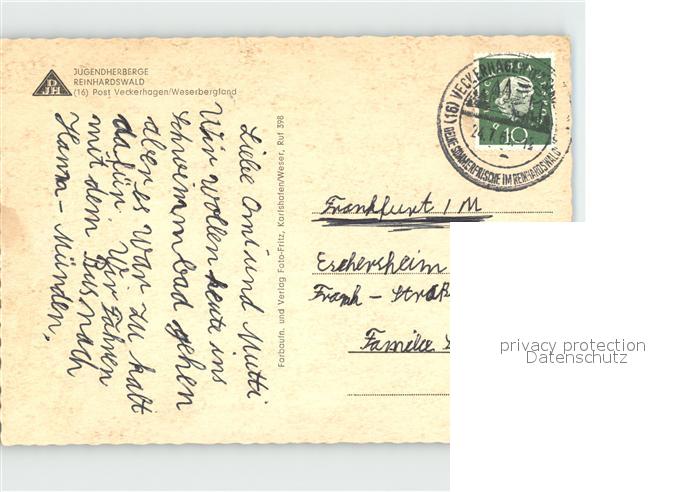 JUGENDHERBERGE
REINHARDSWALD
(16) Post Veckerhagen/Weserbergland
DJH
Liebe Omi und Mutti
Wir wollen heute ins
Schwimmbad gehen
aber es war zu kalt
dafür. Wir fahren
mit dem Bus nach
Hann-Münden.
Farbaufn. und Verlag Foto-Fritz, Karlshafen/Weser, Ruf 398
(16) VECKERHAGEN
SOMMERFRISCHE IM REINHARDSWALD
10
Frankfurt / M
Eschersheim
Frank-Straß
Familie
privacy protection
Datenschutz